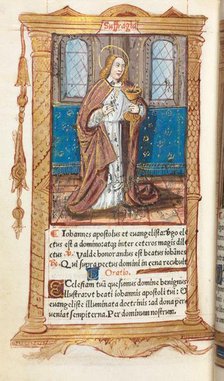 Suffragia
Iohannes apostolus et euangelista virgo ele
ctus est a domino: atq; inter ceteros magis dile
ctus. V. Valde honorandus est beatus iohānes
R. Qui supra pectus domini in cena recubuit
Oratio.
Ecclesiam tuā quesumus domine benignus
illustra: vt beati iohannis apostoli tui: &
euangeliste illuminata doctrinis: ad dona perue
niat sempiterna. Per dominum nostrum.